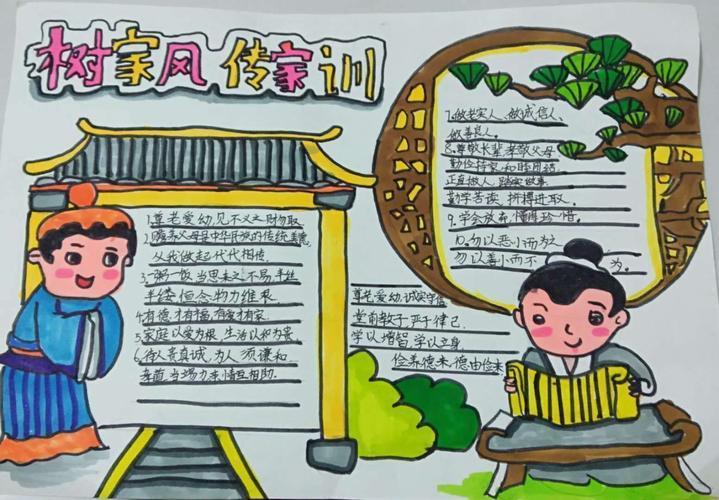 树家风 传家训
1.尊老爱幼,见不义之财勿取.
2.赡养父母是中华民族的传统美德,
从我做起代代相传.
3.一粥一饭当思来之不易,半丝
半缕恒念物力维艰.
4.有德才有福,有爱才有家.
5.家庭以爱为根,生活以和为贵.
6.待人贵真诚,为人须谦和
亲善,当竭力亲情互相助.
7.做老实人、做诚信人、
做善良人.
8.尊敬长辈孝敬父母
勤俭持家,和睦
正直做人,踏实做事.
勤学苦读,拼搏进取.
9.学会放弃,懂得珍惜.
10.勿以恶小而为之
勿以善小而不为。
尊老爱幼,诚实守信
堂前教子,严于律己.
学以增智,学以立身
俭养德来,德由俭来